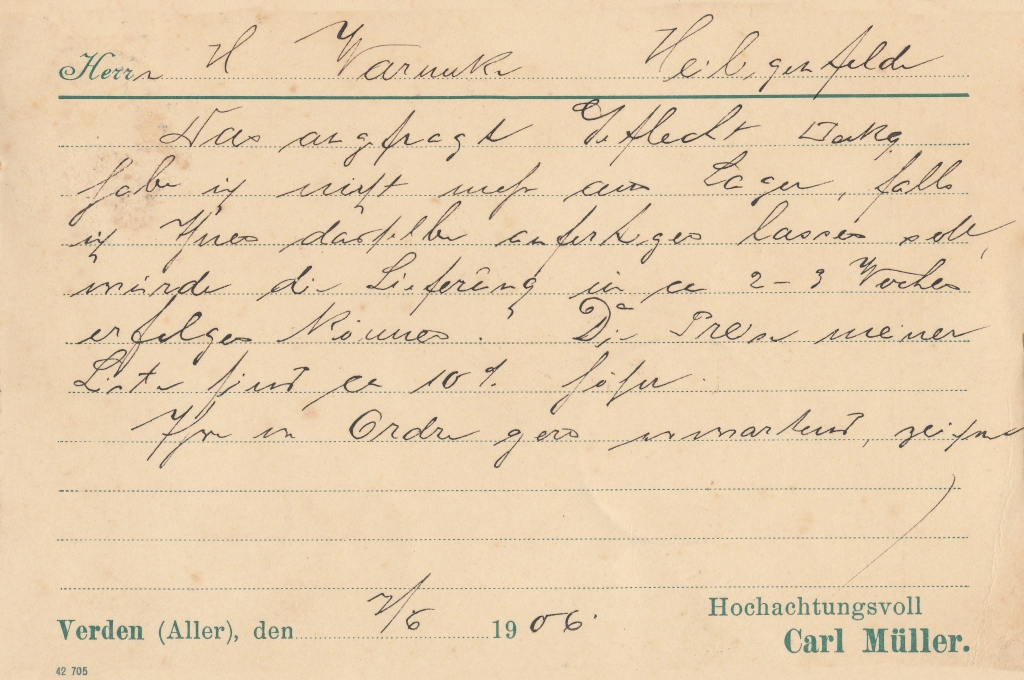 Herrn H Warneke Heiligenfelde
Das angefragt Geflecht
habe ich nicht mehr am Lager, falls
ich Ihnen dasselbe anfertigen lassen soll,
würde die Lieferung in ca 2-3 Wochen
erfolgen können. Die Preise meiner
Liste sind ca 10% höher.
Ihre Ordre gern erwartend, zeichne
Verden (Aller), den 7/6 1906.
Hochachtungsvoll
Carl Müller.
42 705